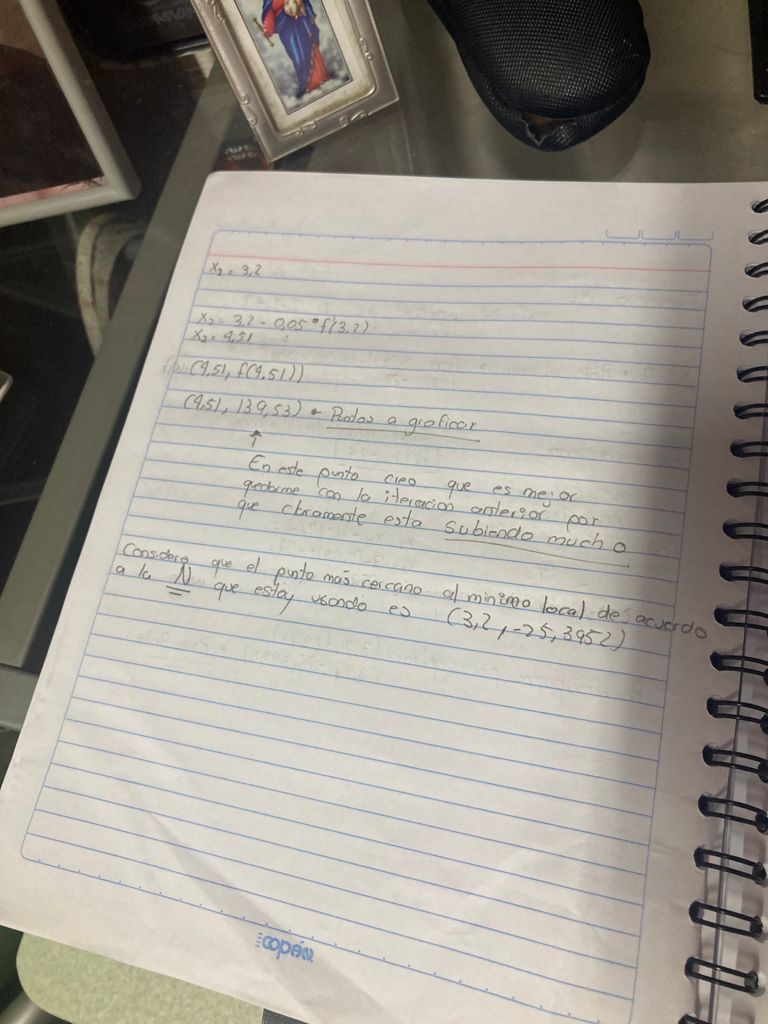 x₂ = 3,2
x₃ = 3,2 - 0,05 * f'(3,2)
x₃ = 4,51
(4,51, f(4,51))
(4,51, 139,53) ← Puntos a graficar
↑
En este punto creo que es mejor
quedarme con la iteracion anterior por
que claramente esta subiendo mucho
Considero que el punto más cercano al minimo local de acuerdo
a la λ que estoy usando es (3,2, -25,3952)
copán